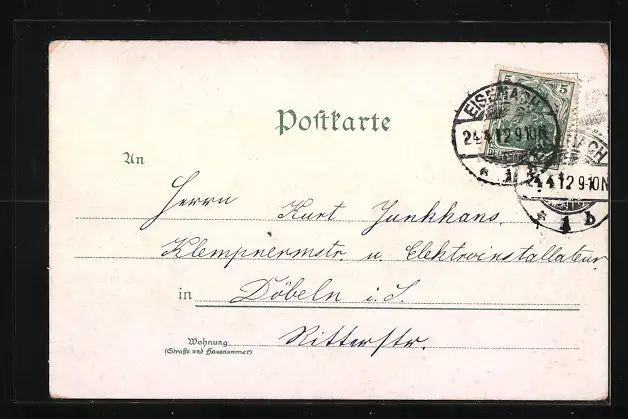 5 5
EISENACH
24.4.12.9-10N
* 1 b
24.4.12.9-10N
* 1 b
Postkarte
An
Herrn Kurt Junkhans.
Klempnermstr. u. Elektroinstallateur
in Döbeln i. S.
Wohnung Ritterstr.
(Straße und Hausnummer)